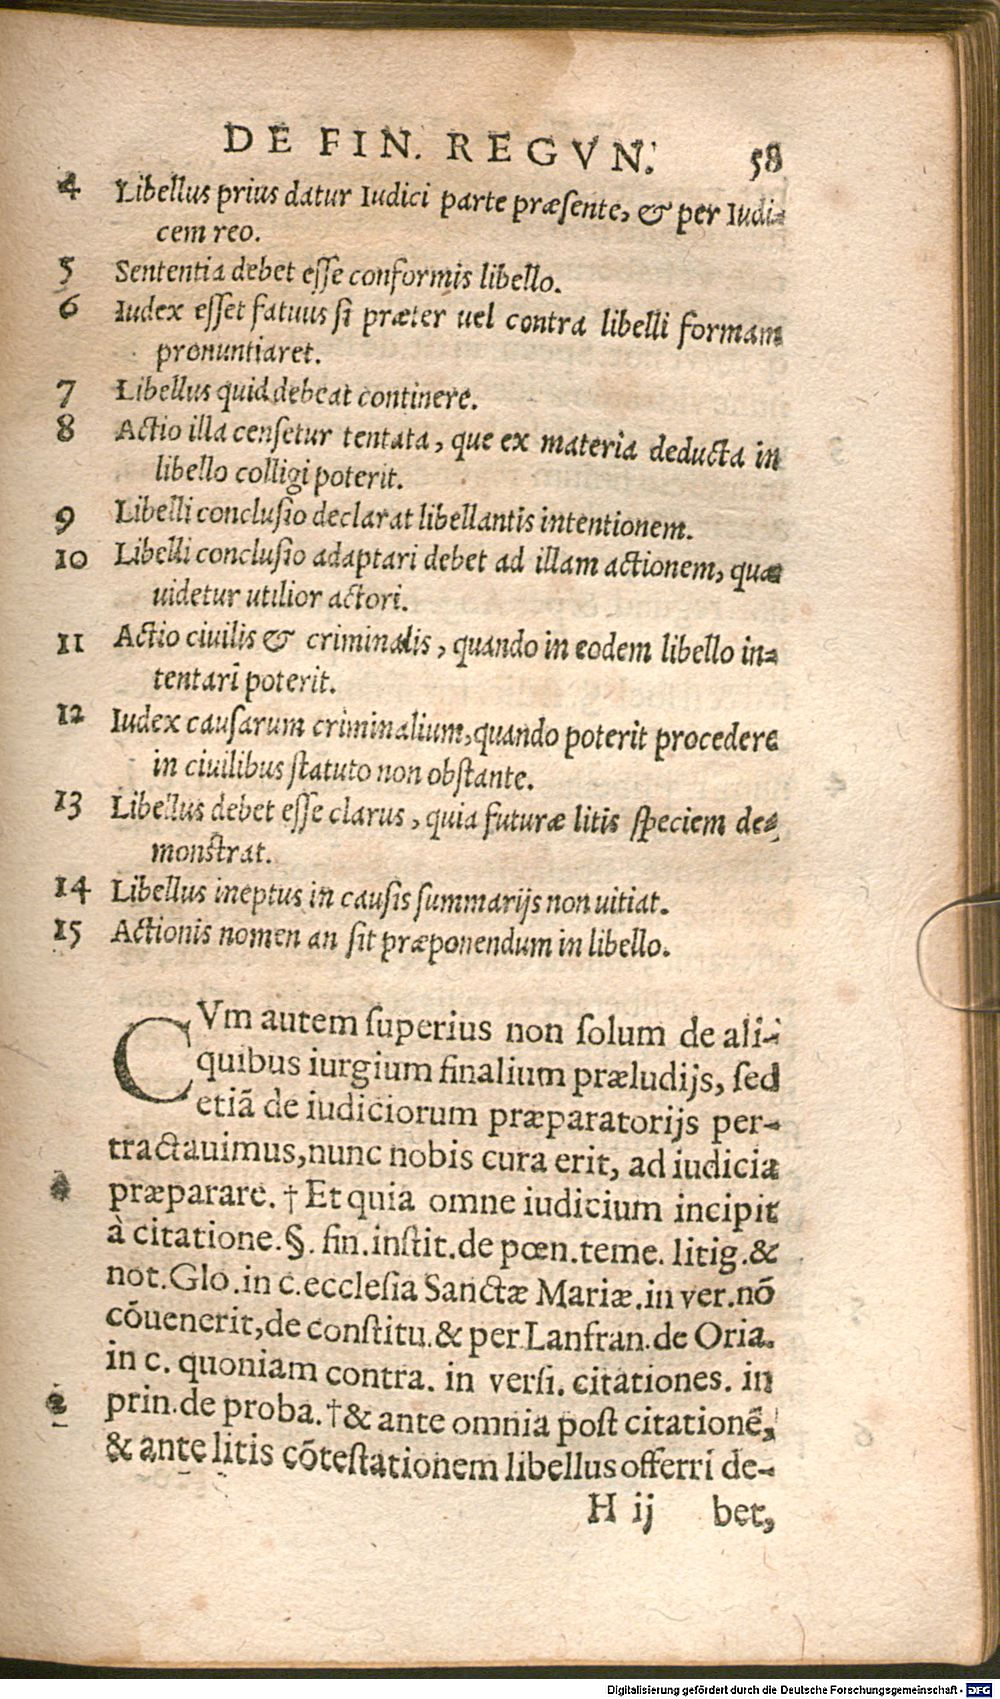 DE FIN. REGVN. 58
4 Libellus prius datur Iudici parte præsente, & per Iudi-
cem reo.
5 Sententia debet eſſe conformis libello.
6 Iudex eſſet fatuus ſi præter uel contra libelli formam
pronuntiaret.
7 Libellus quid debeat continere.
8 Actio illa cenſetur tentata, que ex materia deducta in
libello colligi poterit.
9 Libelli concluſio declarat libellantis intentionem.
10 Libelli concluſio adaptari debet ad illam actionem, quæ
uidetur utilior actori.
11 Actio ciuilis & criminalis, quando in eodem libello in-
tentari poterit.
12 Iudex cauſarum criminalium, quando poterit procedere
in ciuilibus ſtatuto non obſtante.
13 Libellus debet eſſe clarus, quia futuræ litis ſpeciem de-
monſtrat.
14 Libellus ineptus in cauſis ſummarijs non uitiat.
15 Actionis nomen an ſit præponendum in libello.
CVm autem ſuperius non ſolum de ali-
quibus iurgium finalium præludijs, ſed
etiã de iudiciorum præparatorijs per-
tractauimus, nunc nobis cura erit, ad iudicia
præparare. † Et quia omne iudicium incipit
à citatione. §. fin. inſtit. de pœn. teme. litig. &
not. Glo. in c. eccleſia Sanctæ Mariæ. in ver. nõ
cõuenerit, de conſtitu. & per Lanfran. de Oria.
in c. quoniam contra. in verſi. citationes. in
2 prin. de proba. † & ante omnia poſt citationẽ,
& ante litis cõteſtationem libellus offerri de-
H ij bet,
Digitalisierung gefördert durch die Deutsche Forschungsgemeinschaft - DFG